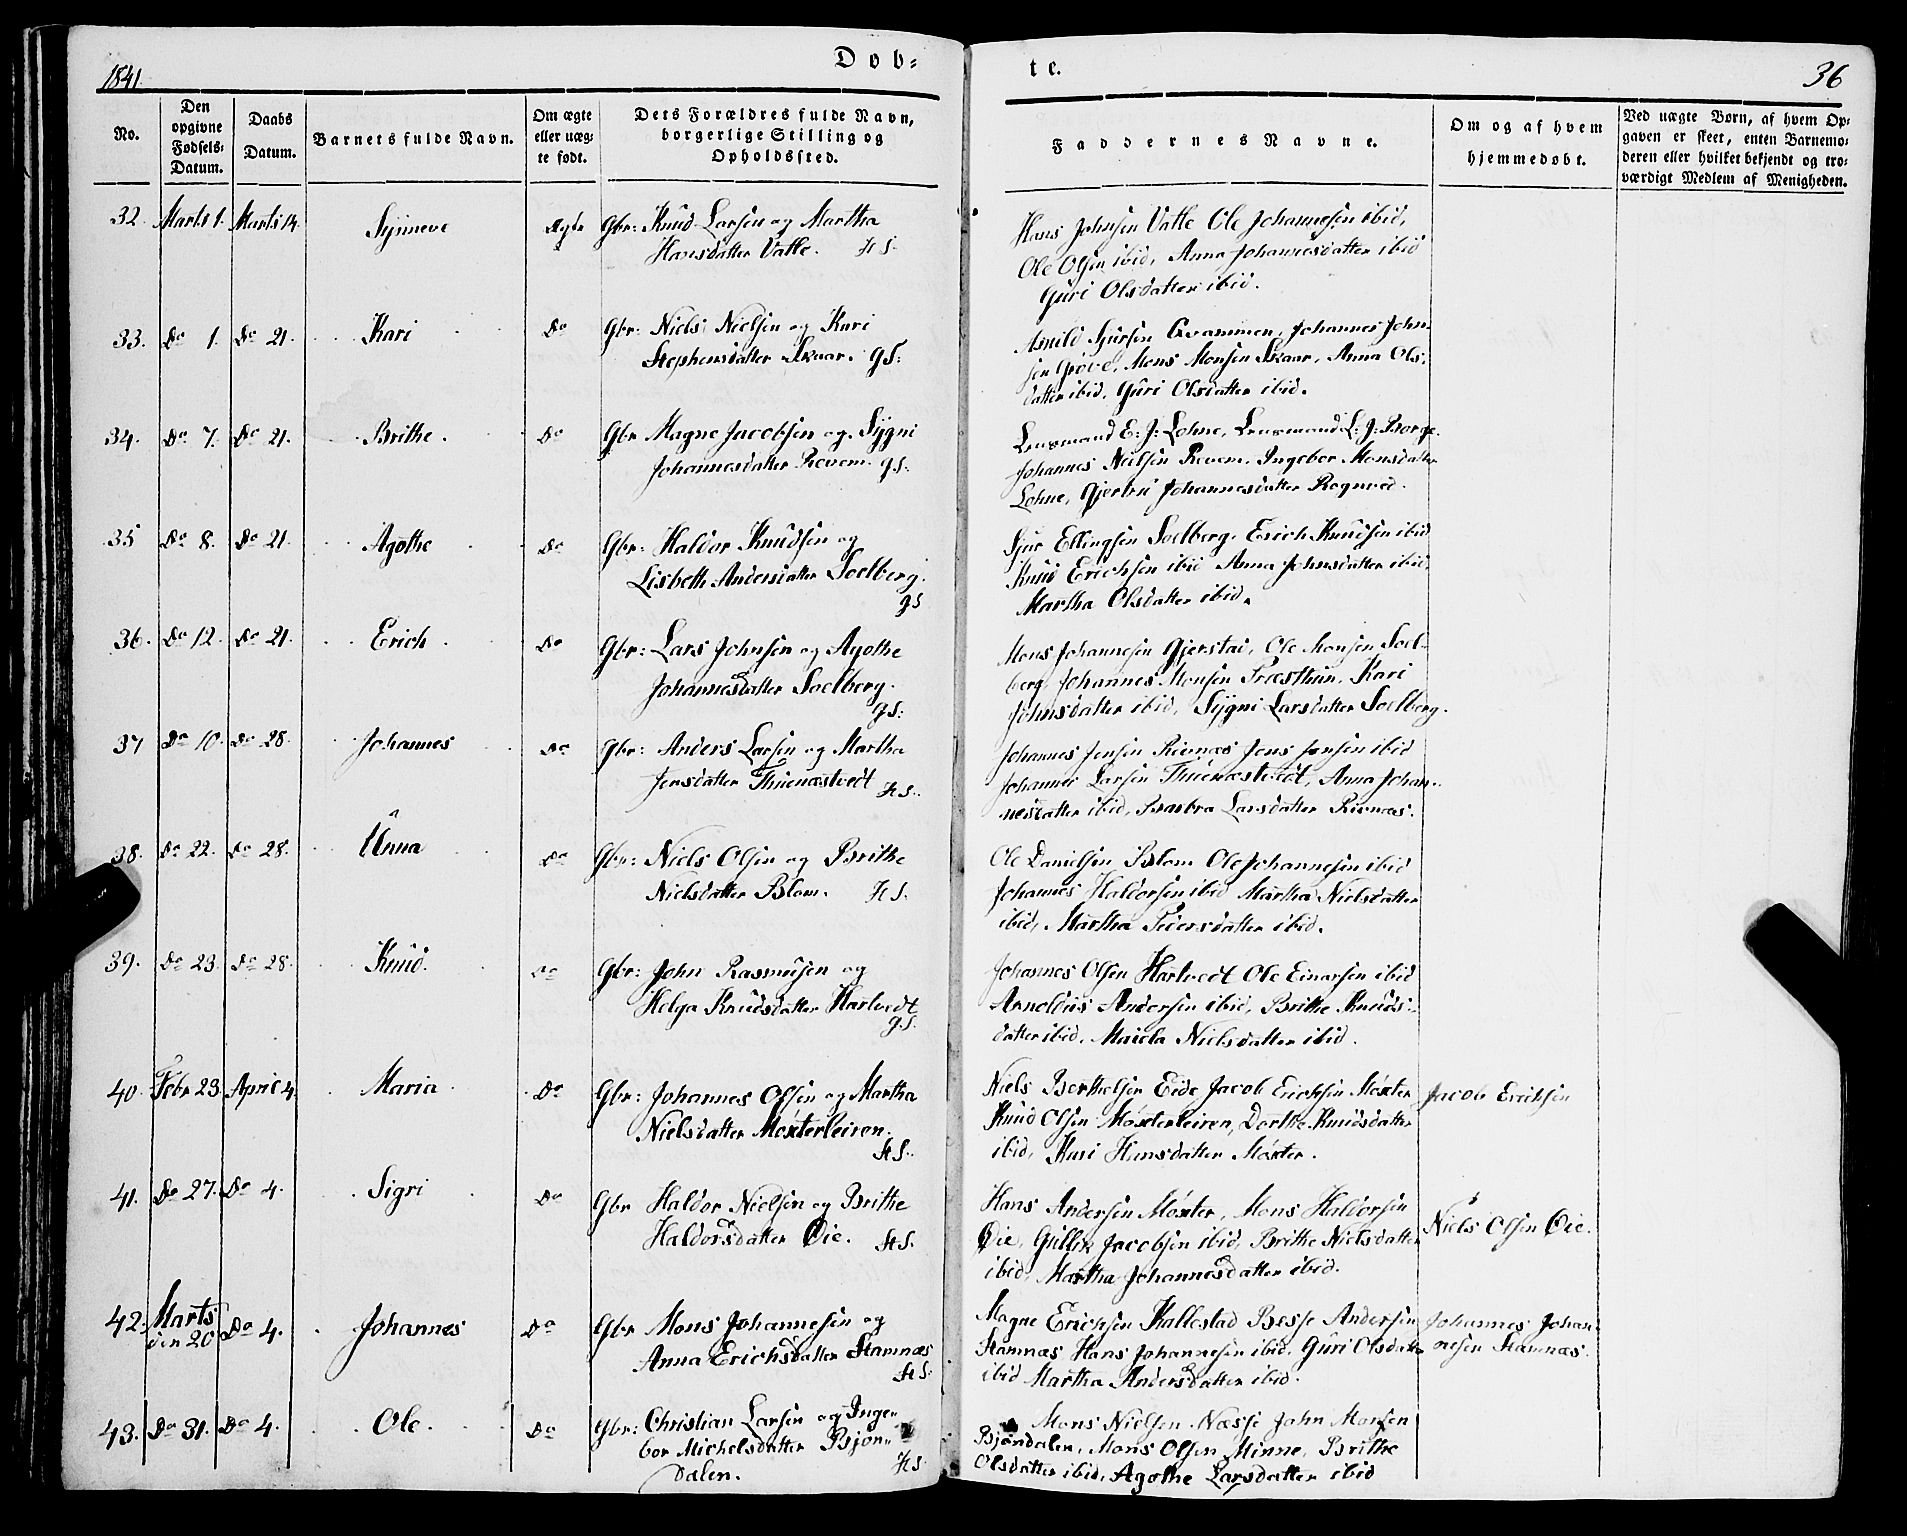 1841.
Døb-
te.
36
No.
Den
opgivne
Fødsels-
Datum.
Daabs
Datum.
Barnets fulde Navn.
Om ægte
eller uæg-
te født.
Dets Forældres fulde Navn,
borgerlige Stilling og
Opholdssted.
Faddernes Navne.
Om og af hvem
hjemmedøbt.
Ved uægte Børn, af hvem Op-
gaven er skeet, enten Barnemo-
deren eller hvilket bekjendt og tro-
værdigt Medlem af Menigheden.
32. Marts 1. Marts 14. Synneve Ægte Gbr: Knud Larsen og Martha
Hansdatter Vatle. HS.
Hans Johnsen Vatle Ole Johannesen ibid,
Ole Olsen ibid, Anna Johannesdatter ibid
Guri Olsdatter ibid.
33. Do 1. Do 21. Kari Do Gbr: Niels Nielsen og Kari
Stephensdatter Skaar. gS:
Arnild Sjursen Qvammen, Johannes John-
sen Gjøve, Mons Monsen Skaar, Anna Ols-
datter ibid, Guri Olsdatter ibid.
34. Do 7. Do 21. Brithe. Do Gbr Magne Jacobsen og Sygni
Johannesdatter Revem. gS.
Lensmand E: J: Lohne, Lensmand L: J: Borge.
Johannes Nielsen Revem. Ingebor Monsdatter
Lohne, Gjertru Johannesdatter Rogneed.
35 Do 8. Do 21. Agothe Do Gbr: Haldor Knudsen og
Lisbeth Andersdatter Soelberg.
gS
Sjur Ellingsen Soelberg. Erich Knudsen ibid
Knud Erichsen ibid Anna Johnsdatter ibid,
Martha Olsdatter ibid.
36. Do 12. Do 21. Erich Do Gbr: Lars Johnsen og Agothe
Johannesdatter Soelberg.
gS:
Mons Johannesen Gjerstad, Ole Monsen Soel-
berg, Johannes Monsen Præsthun, Kari
Johnsdatter ibid, Sygni Larsdatter Soelberg.
37 Do 10. Do 28. Johannes Do Gbr: Anders Larsen og Martha
Jensdatter Thuenæstvedt HS.
Johannes Jensen Rivnæs Jens Jensen ibid
Johannes Larsen Thuenæstvedt, Anna Johan-
nesdatter ibid, Brarbra Larsdatter Rivnæs.
38. Do 22. Do 28. Anna Do Gbr: Niels Olsen og Brithe
Nielsdatter Blom. HS.
Ole Danielsen Blom Ole Johannesen ibid
Johannes Haldorsen ibid Martha Nielsdatter
ibid, Martha Pedersdatter ibid.
39. Do 23. Do 28. Knud. Do Gbr: John Rasmusen og
Helga Knudsdatter Hartvedt
gS.
Johannes Olsen Hartvedt Ole Einarsen ibid
Arnoldus Andersen ibid, Brithe Knuds-
datter ibid, Maiela Nielsdatter ibid.
40. Febr 23. April 4. Maria Do Gbr: Johannes Olsen og Martha
Nielsdatter Møxterleiren.
HS.
Niels Berthelsen Eide Jacob Ericksen Møxter
Knud Olsen Møxterleiren, Dorthe Knudsdatter
ibid, Kari Hansdatter Møxter.
Jacob Ericksen
41. Do 27. Do 4. Sigri Do Gbr Haldor Nielsen og Brithe
Haldorsdatter Øie. HS.
Hans Andersen Møxter, Mons Haldorsen
Øie, Gullik Jacobsen ibid, Brithe Nielsdatter
ibid, Martha Johannesdatter ibid.
Niels Olsen Øie.
42. Marts
den 20 Do 4. Johannes Do Gbr Mons Johannesen og
Anna Erichsdatter Stamnæs
HS.
Magne Erichsen Hallestad Besse Andersen
Stamnæs Hans Johannesen ibid, Guri Olsdatter
ibid Martha Andersdatter ibid.
Johannes Johan-
nesen Stamnæs.
43. Do 31. Do 4. Ole. Do Gbr: Christian Larsen og Inge-
bor Michelsdatter Bjørn-
dalen. HS
Mons Nielsen Næsse John Monsen
Bjøndalen, Mons Olsen Minne, Brithe
Olsdatter ibid, Agothe Larsdatter ibid